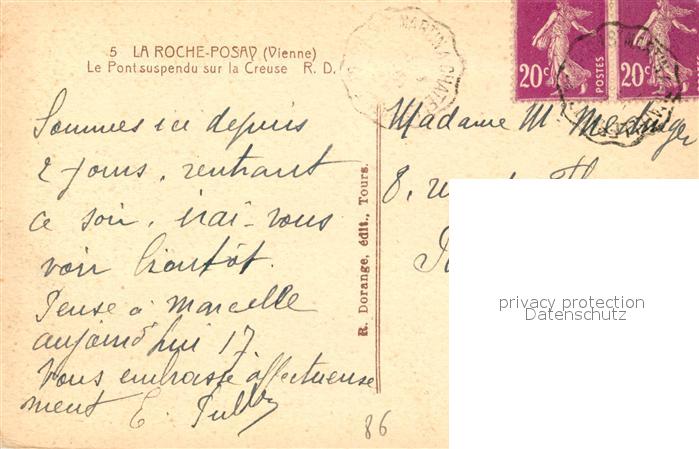 5 LA ROCHE-POSAY (Vienne)
Le Pont suspendu sur la Creuse R. D.
Sommes ici depuis
2 jours, rentrant
ce soir, irai-vous
voir bientôt.
Pense à Marcelle
aujourd'hui 17.
Vous embrasse affectueuse
ment E.
R. Dorange, édit., Tours.
MARTIN CHATE
20c POSTES
20c
Madame M
8, rue
86
privacy protection
Datenschutz